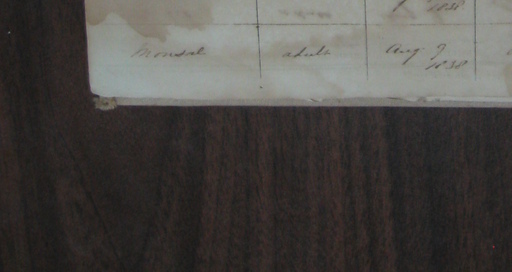 1838
Monsal adult Aug 9
1838